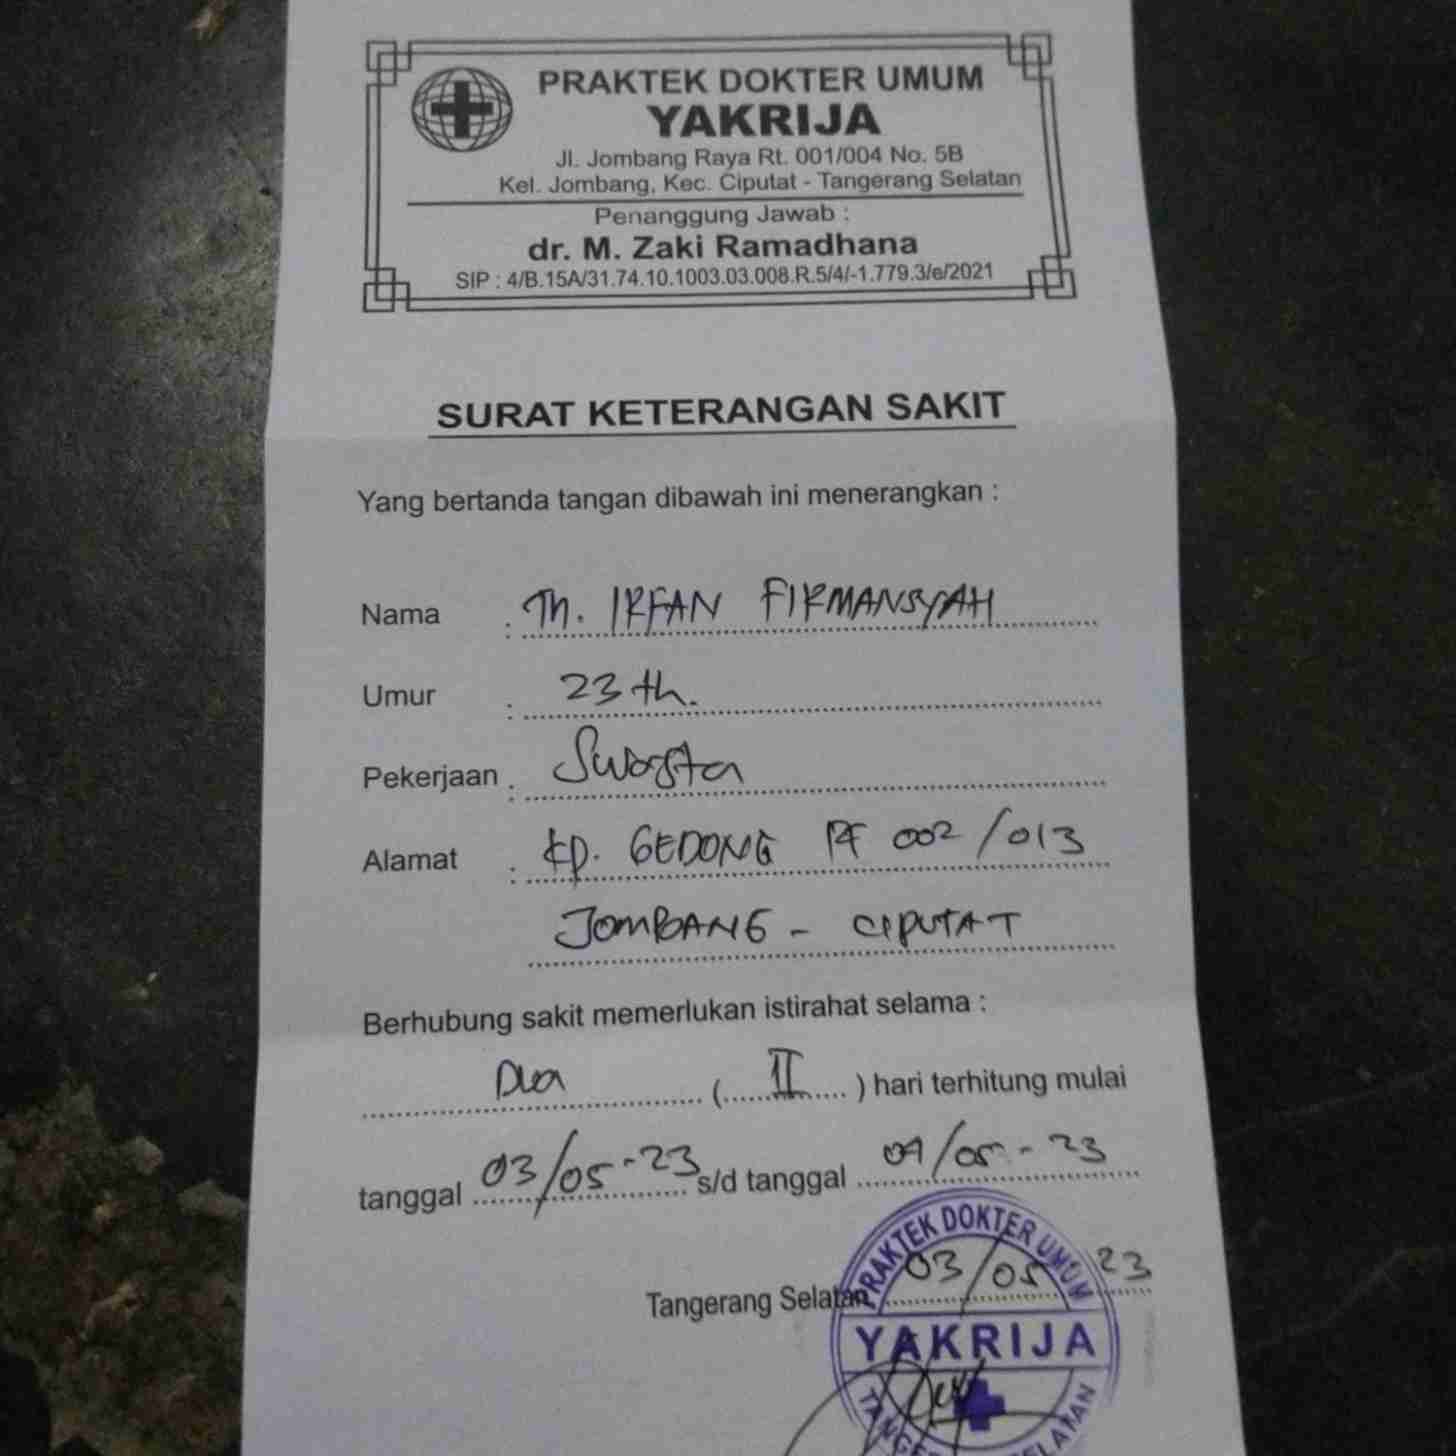 PRAKTEK DOKTER UMUM
YAKRIJA
Jl. Jombang Raya Rt. 001/004 No. 5B
Kel. Jombang, Kec. Ciputat - Tangerang Selatan
Penanggung Jawab :
dr. M. Zaki Ramadhana
SIP : 4/B.15A/31.74.10.1003.03.008.R.5/4/-1.779.3/e/2021
SURAT KETERANGAN SAKIT
Yang bertanda tangan dibawah ini menerangkan :
Nama : Tn. IRFAN FIRMANSYAH
Umur : 23 th.
Pekerjaan : Swasta
Alamat : Kp. GEDONG RT 002/013
JOMBANG - CIPUTAT
Berhubung sakit memerlukan istirahat selama :
Dua ( II ) hari terhitung mulai
tanggal 03/05-23 s/d tanggal 04/05-23
Tangerang Selatan 03/05 23
PRAKTEK DOKTER UMUM
YAKRIJA
TANGERANG SELATAN